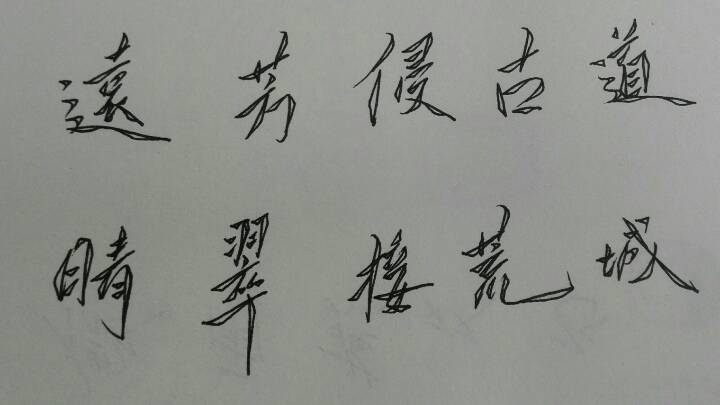 遠芳侵古道
晴翠接荒城